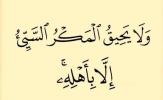 وَلَا يَحِيقُ الْمَكْرُ السَّيِّئُ
إِلَّا بِأَهْلِهِ ۚ